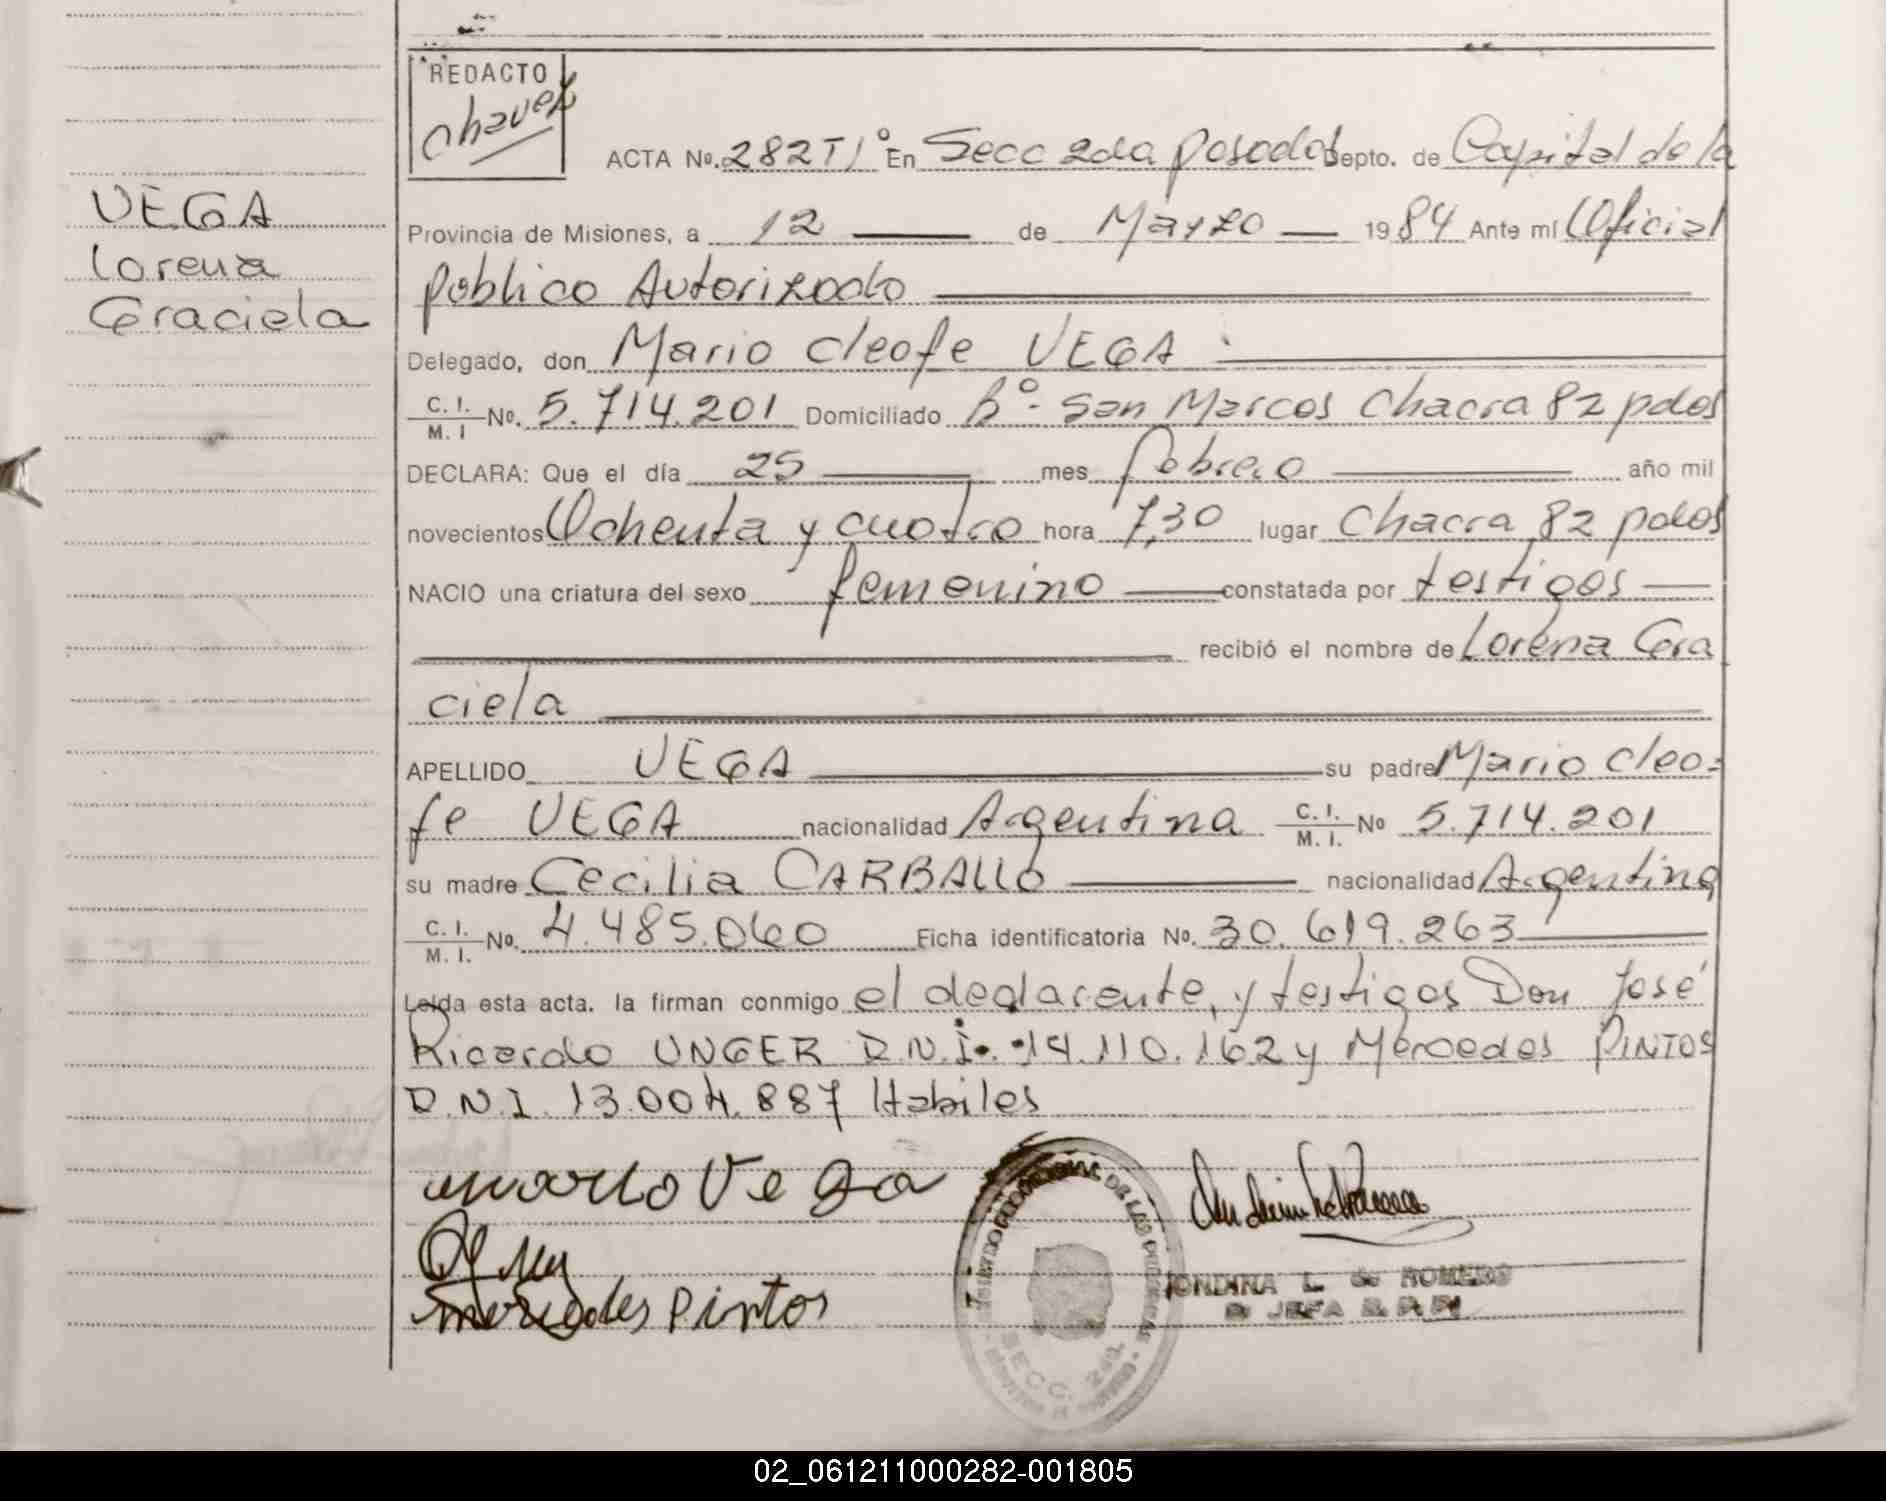 REDACTO
Chavez
ACTA No. 282 T1° En Secc 2da Posadas Depto. de Capital de la
VEGA
Lorena
Graciela
Provincia de Misiones, a 12 de Marzo 1984 Ante mí Oficial
Público Autorizado
Delegado, don Mario Cleofe VEGA
C. I. / M. I No. 5.714.201 Domiciliado B°- San Marcos Chacra 82 pdas
DECLARA: Que el día 25 mes febrero año mil
novecientos Ochenta y cuatro hora 7,30 lugar Chacra 82 pdas
NACIO una criatura del sexo femenino constatada por testigos
recibió el nombre de Lorena Gra
ciela
APELLIDO VEGA su padre Mario Cleo=
fe VEGA nacionalidad Argentina C. I. / M. I. No 5.714.201
su madre Cecilia CARBALLO nacionalidad Argentina
C. I. / M. I. No. 4.485.060 Ficha identificatoria No. 30.619.263
Leída esta acta. la firman conmigo el declarante, y testigos Don José
Ricardo UNGER D.N.I. 14.110.162 y Mercedes PINTOS
D.N.I. 13.004.887 Habiles
Mario Vega
Mercedes Pintos
L. de ROMERO
JEFA
SECC. 2da.
02_061211000282-001805